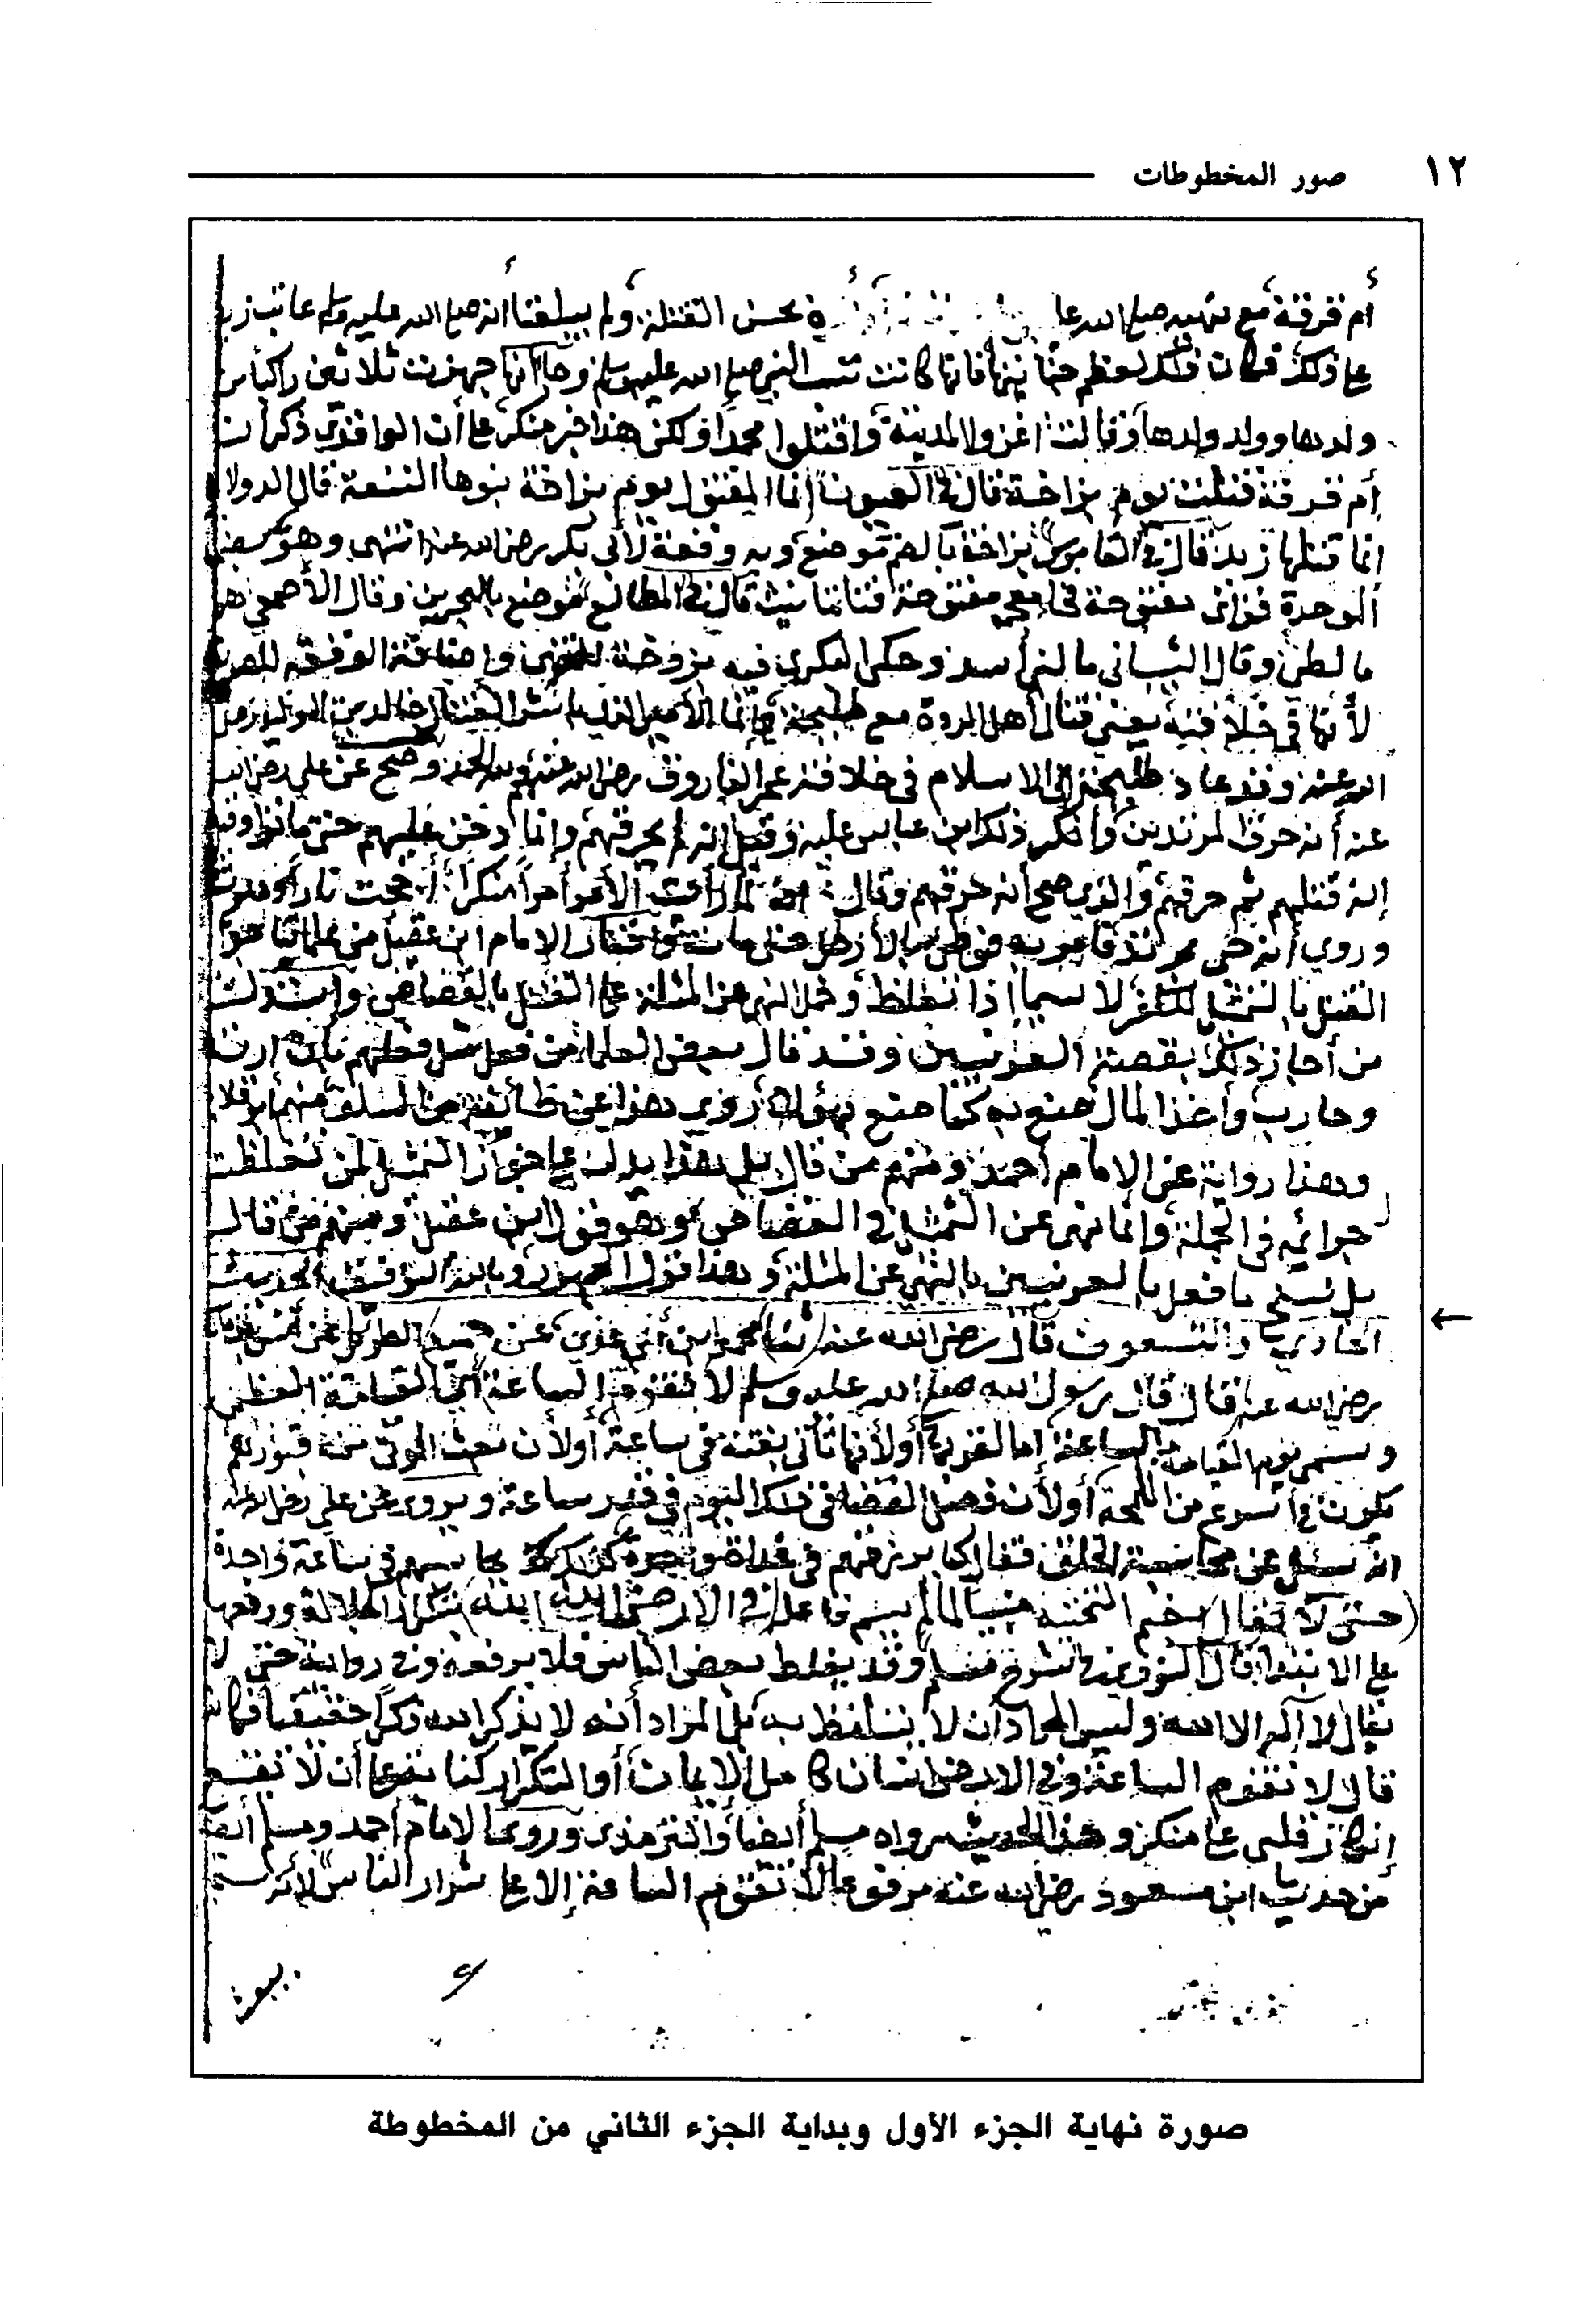 ١٢ صور المخطوطات
أم قرفة مع نهيه صلى الله بحسن القتلة ولم يبلغنا أنه صلى الله عليه وسلم عاتب زيد
على ذلك فكان ذلك لعظم جنايتها فإنها كانت تسب النبي صلى الله عليه وسلم وجاء أنها جهزت ثلاثين راكبا من
ولدها وولد ولدها وقالت اغزوا المدينة واقتلوا محمدا ولكن هذا خبر منكر على أن الواقدي ذكر أن
أم قرفة قتلت يوم بزاخة قال في العيون إنما المقتول يوم بزاخة بنوها التسعة قال الدولا
إنما قتلها زيد قال في القاموس بزاخة بالضم موضع وبه وقعة لأبي بكر رضي الله عنه انتهى وهو بضم
الموحدة فزاي مفتوحة فخاء معجمة مفتوحة فتاء تأنيث قال في المطالع موضع بالبحرين وقال الأصمعي هو
ماء لطيئ وقال الشيباني ماء لبني أسد وحكى البكري فيه بزوخة انتهى وإضافة الوقعة للصديق
لأنها في خلافته يعني قتال أهل الردة مع طليحة وإنما الأمير الذي باشر القتال خالد بن الوليد رضي
الله عنه وقد عاد طليحة إلى الإسلام في خلافة عمر الفاروق رضي الله عنه ولله الحمد وصح عن علي رضي الله
عنه أنه حرق المرتدين وأنكر ذلك ابن عباس عليه وقيل إنه لم يحرقهم وإنما دخن عليهم حتى ماتوا وقيل
إنه قتلهم ثم حرقهم والذي صح أنه حرقهم وقال لما رأيت الأمر أمرا منكرا أججت نارا ودعوت
وروي أنه جيء بمرتد فأمر به فوطئ بالأرجل حتى مات واختار الإمام ابن عقيل من علمائنا جواز
القتل بالتمثيل للكفر لا سيما إذا تغلظ وحمل النهي عن المثلة على القتل بالقصاص واستدل
من أجاز ذلك بقصة العرنيين وقد قال بعض العلماء من فعل مثل فعلهم بأن ارتد
وحارب وأخذ المال صنع به كما صنع بهؤلاء روي هذا عن طائفة من السلف منهم أبو قلا
وهذا رواية عن الإمام أحمد ومنهم من قال بل هذا يدل على جواز التمثيل لمن تغلظت
جرائمه في الجملة وإنما نهى عن التمثيل في القصاص وهو قول ابن عقيل ومنهم من قال
بل نسخ ما فعل بالعرنيين بالنهي عن المثلة وهذا قول الجمهور وبالله التوفيق الحديث
الحادي والتسعون قال رضي الله عنه (ثنا) محمد ابن أبي عدي عن حميد الطويل عن أنس
رضي الله عنه قال قال رسول الله صلى الله عليه وسلم لا تقوم الساعة أي القيامة العظمى
وسمي يوم القيامة بالساعة إما لقربها أو لأنها تأتي بغتة في ساعة أو لأن بعث الموتى من قبورهم
يكون في أسرع من اللمحة أو لأن فصل القضاء في ذلك اليوم في قدر ساعة ويروى عن علي رضي الله عنه
أنه سئل عن محاسبة الخلق فقال كما يرزقهم في غداة واحدة كذلك يحاسبهم في ساعة واحدة
(حتى لا يقال) بضم التحتية مبنيا لما لم يسم فاعله (في الأرض الله الله) بتكرار الجلالة ورفعها
على الابتداء قال النووي في شرح مسلم وقد يغلط بعض الناس فلا يرفعه وفي رواية حتى لا
يقال لا إله إلا الله وليس المراد أن لا يتلفظ به بل المراد أنه لا يذكر الله ذكرا حقيقيا فكأنه
قال لا تقوم الساعة وفي الأرض إنسان كامل الإيمان أو التكرار كناية عن أن لا يقع
إنكار قلبي على منكر وهذا الحديث رواه مسلم أيضا والترمذي وروى الإمام أحمد ومسلم أيضا
من حديث ابن مسعود رضي الله عنه مرفوعا لا تقوم الساعة إلا على شرار الناس لأنه
←
صورة نهاية الجزء الأول وبداية الجزء الثاني من المخطوطة